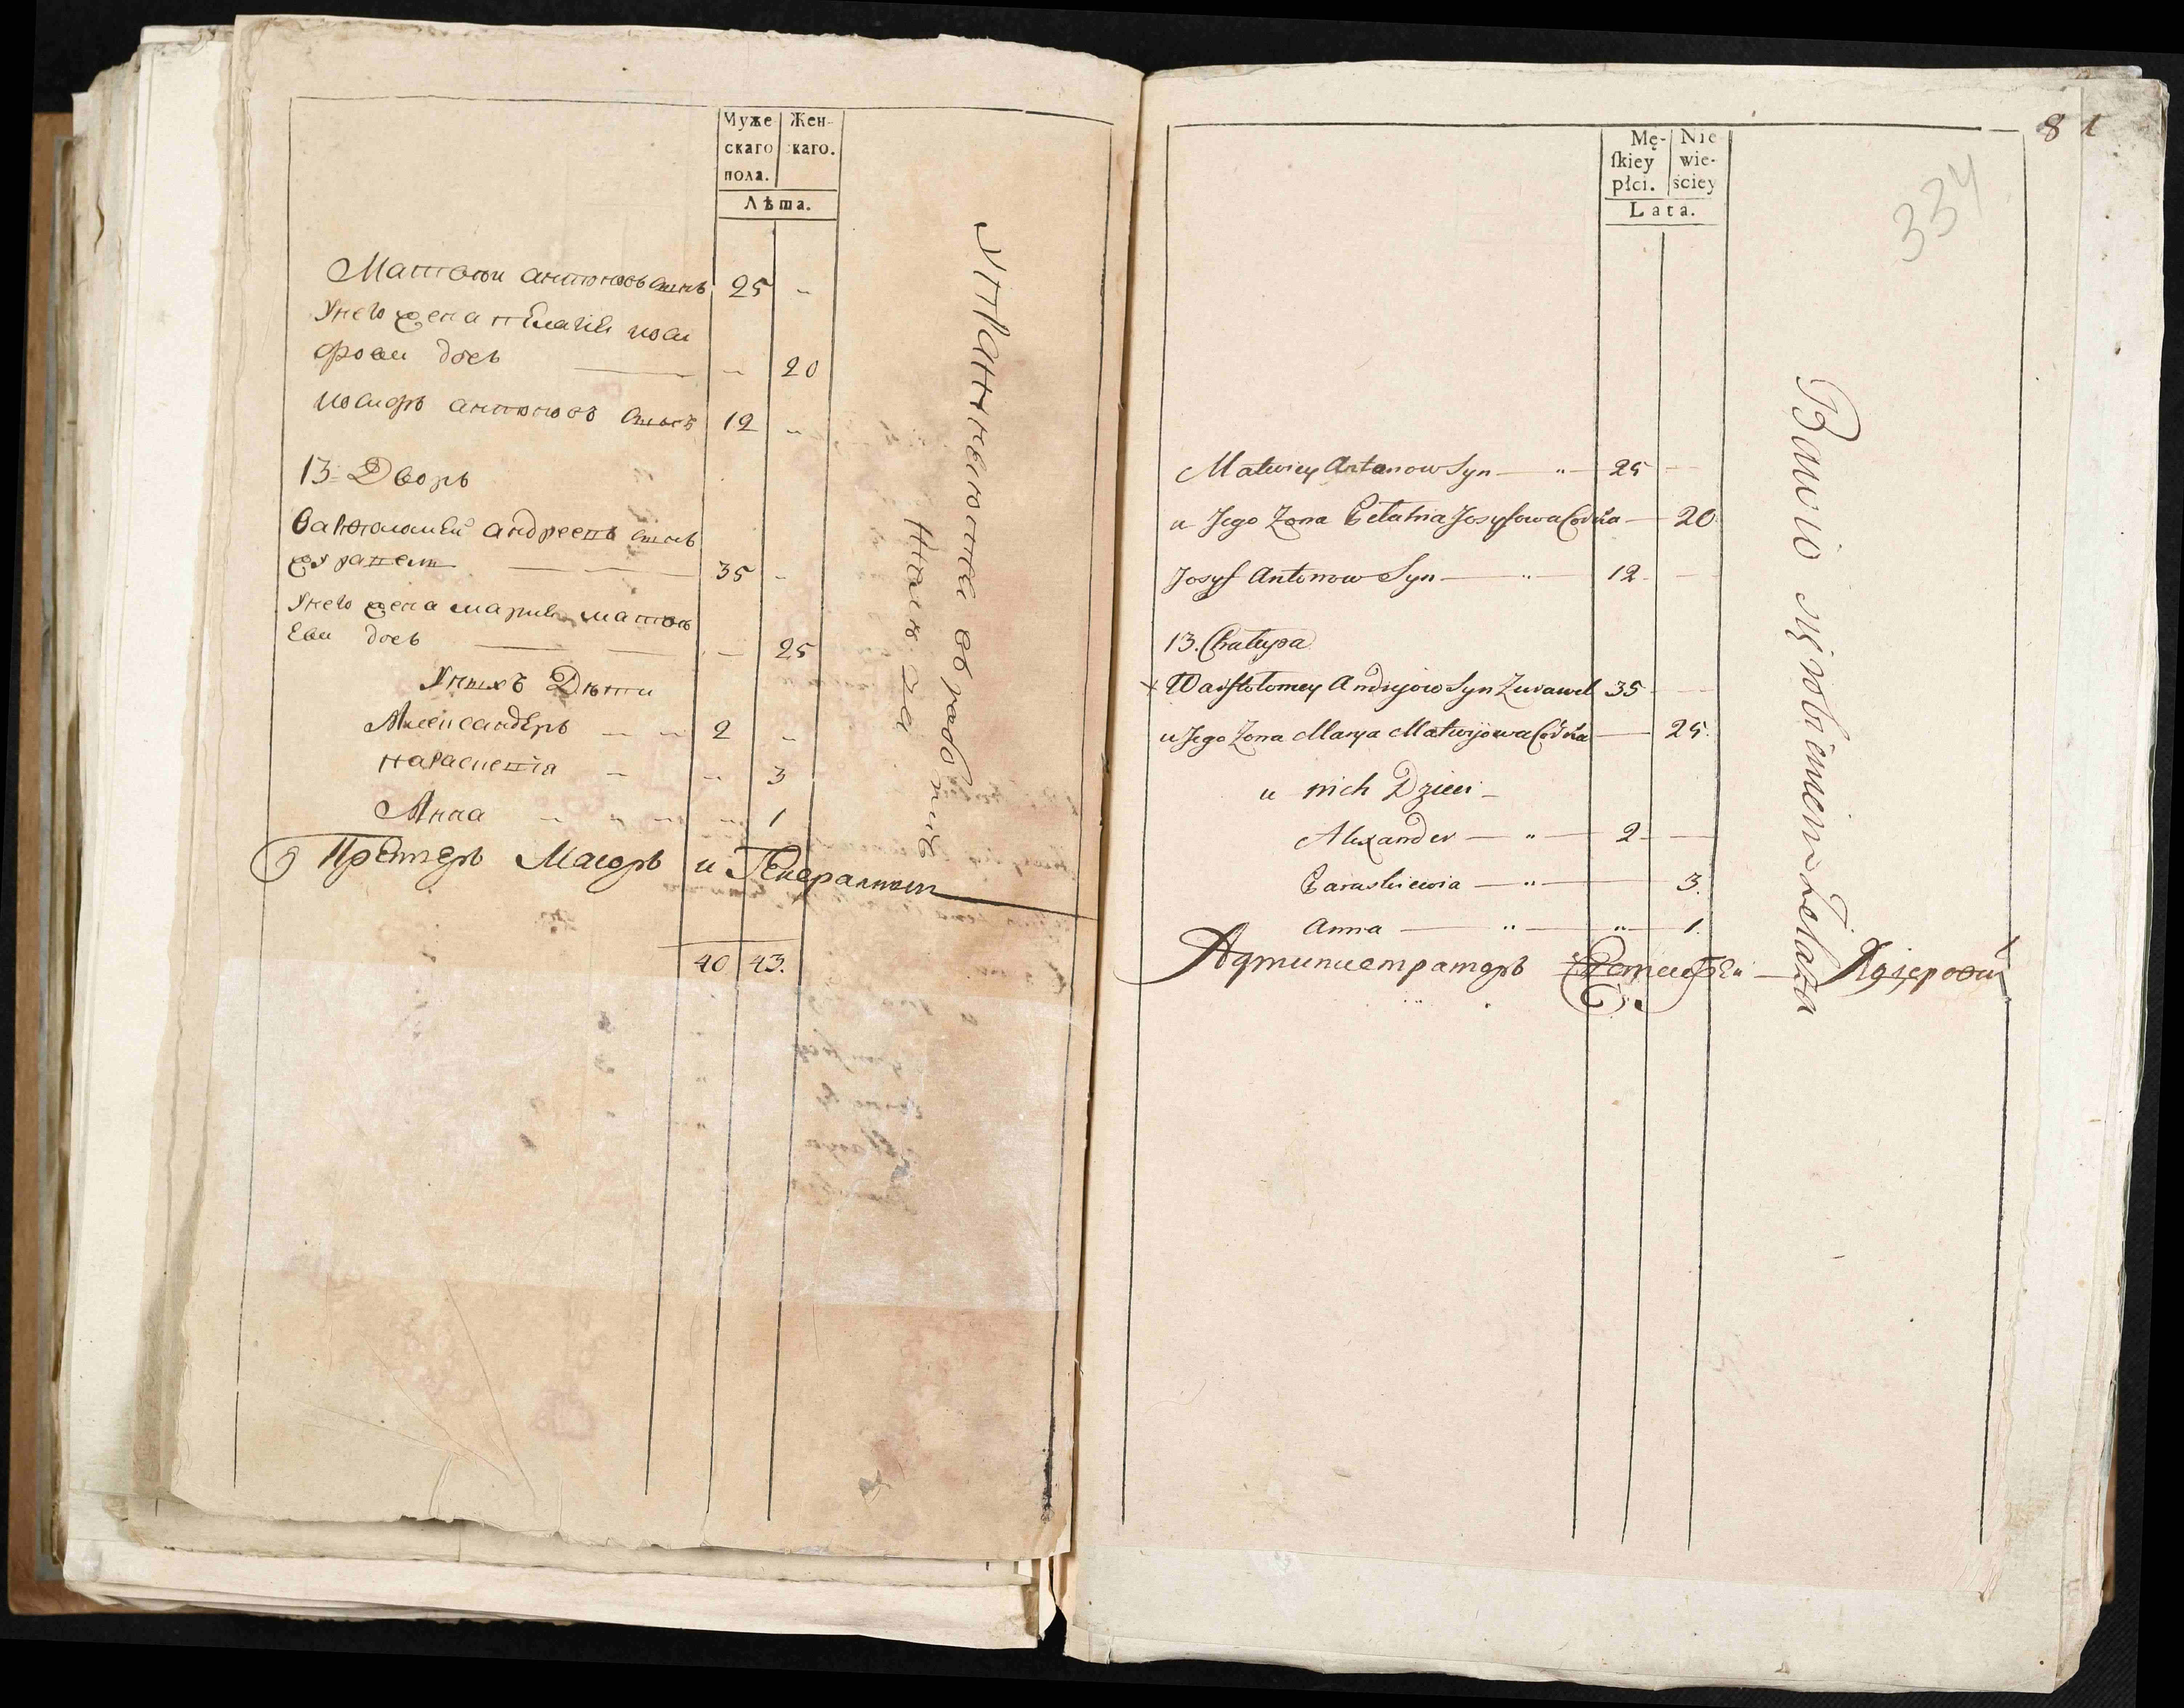 Муже
скаго
пола.
Жен-
скаго.
Лѣта.
Матвѣи антоновъ сынъ 25 „
Унего жена пелагiя иоси
фова дочь — „ 20
иосифъ антоновъ сынъ 12 „
13 Дворъ
Вартоломей андреевъ сынъ
журавель — — 35 „
Унего жена мария матвѣ
ева дочь — — „ 25
Унихъ Дѣти
Александеръ — „ 2 „
параскевiя — „ 3
Анна „ „ „ „ 1
Маiоръ и
40 43.
81
334
Mę-
ſkiey
płci.
Nie
wie-
ściey
Lata.
Matwiey Antonow Syn — „ — 25 —
u Jego Zona Pelahia Josyfowa Corka — 20
Josyf Antonow Syn — „ — 12 —
13. Chałupa
× Wartołomey Andryiow Syn Zurawel 35 —
u Jego Zona Marya Matwijowa Corka — 25.
u nich Dzieci —
Alexander — „ — 2 —
Paraskiewia — „ — 3.
Anna — „ — „ — 1.
Bawio się robieniem Żelaza
Администраторъ